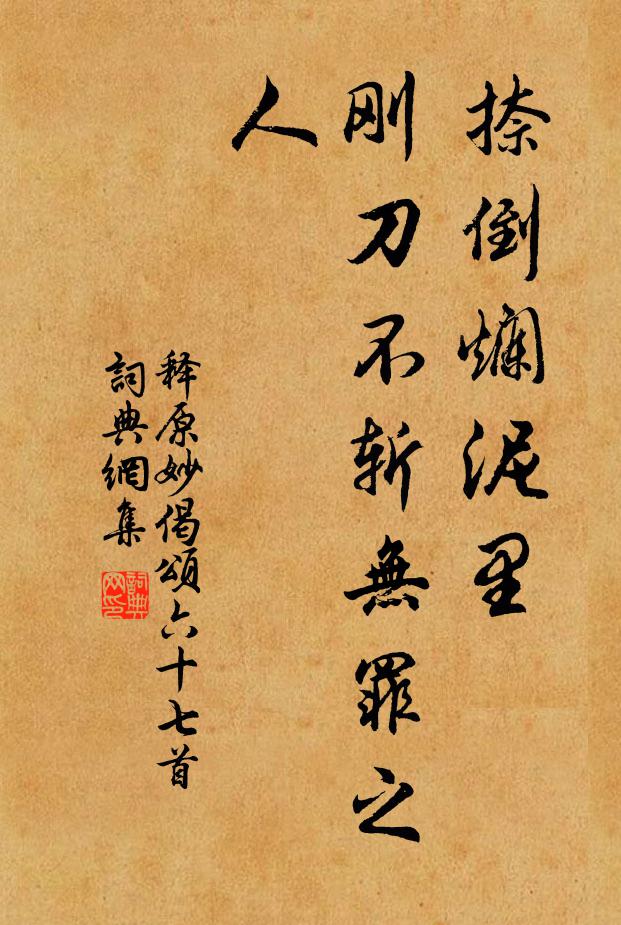 捺倒爛泥里
刚刀不斩無罪之
人
释原妙偈頌六十七首
詞典網集
詞典
网印